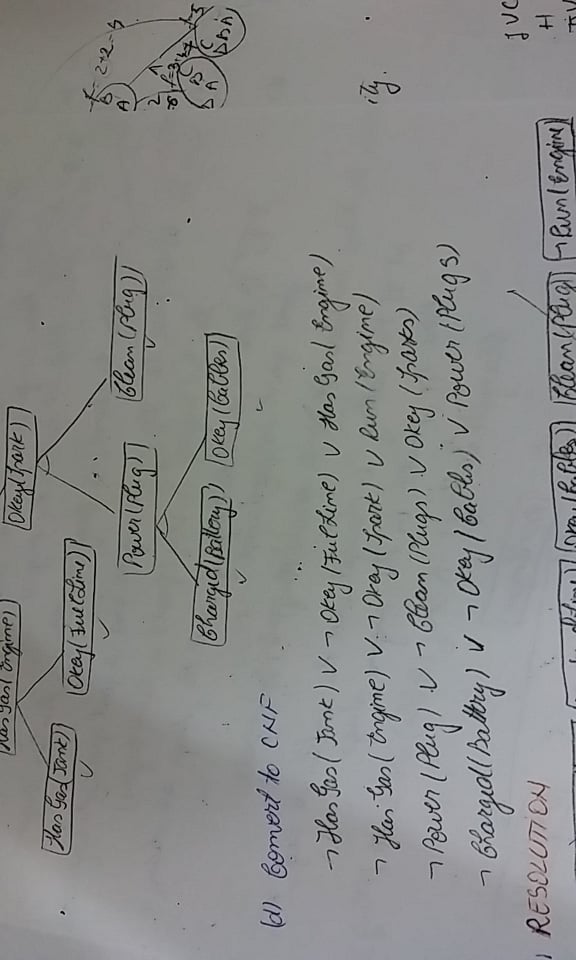 HasGas(Engine)
Okey(Spark)
HasGas(Tank)
Okey(FuelLine)
Power(Plug)
Clean(Plug)
Charged(Battery)
Okey(Cables)
f= 2+2=4
B
A
2
C
B
D A
C
D B A
(d) Convert to CNF
¬HasGas(Tank) ∨ ¬Okey(FuelLine) ∨ HasGas(Engine)
¬HasGas(Engine) ∨ ¬Okey(Spark) ∨ Run(Engine)
ity.
¬Power(Plug) ∨ ¬Clean(Plugs) ∨ Okey(Sparks)
¬Charged(Battery) ∨ ¬Okey(Cables) ∨ Power(Plugs)
RESOLUTION
Okey(Cables)
Clean(Plug)
¬Run(Engine)
H